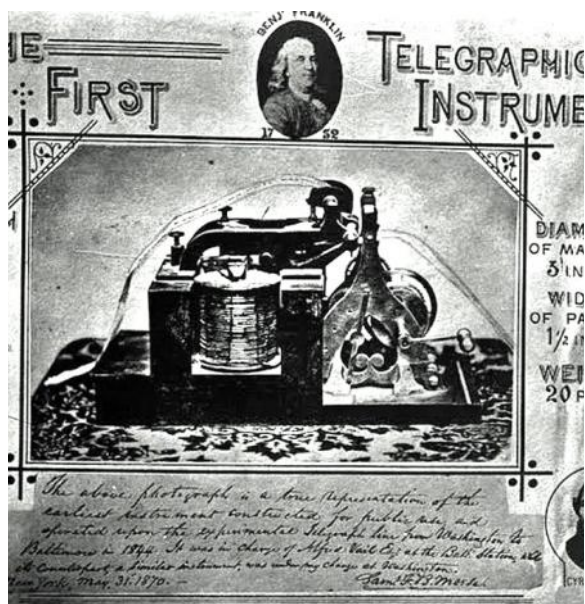 BENJ. FRANKLIN
1752
THE FIRST
TELEGRAPHIC
INSTRUME
DIAM
OF MA
3 IN
WID
OF PA
1½ IN
WEI
20 P
The above photograph is a true representation of the
earliest instrument constructed for public use, and
operated upon the experimental Telegraph line from Washington to
Baltimore in 1844. It was in charge of Alfred Vail Esq at the Balt. Station, and
its counterpart, a similar instrument, was under my charge at Washington.
New York, May, 31. 1870.— Saml. F. B. Morse
CYR